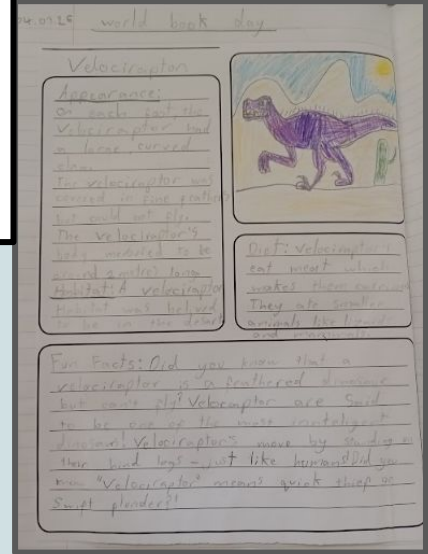 world book day
Velociraptor
Appearance:
On each foot the
Velociraptor had
a large curved
claw.
The velociraptor was
covered in fine feathers
but could not fly.
The velociraptor's
body measured to be
around 2 metres long
Habitat: A velociraptor
Habitat was belived
to be in the desert
Diet: velociraptor's
eat meat which
makes them
They ate smaller
animals like lizards
and mammals.
Fun Facts: Did you know that a
velociraptor is a feathered dinosaur
but can't fly? Velociraptor are Said
to be one of the most inntelligent
dinosaur! Velociraptor's move by standing on
their hind legs - just like humans! Did you
know "Velociraptor" means quick thief or
Swift plunders!